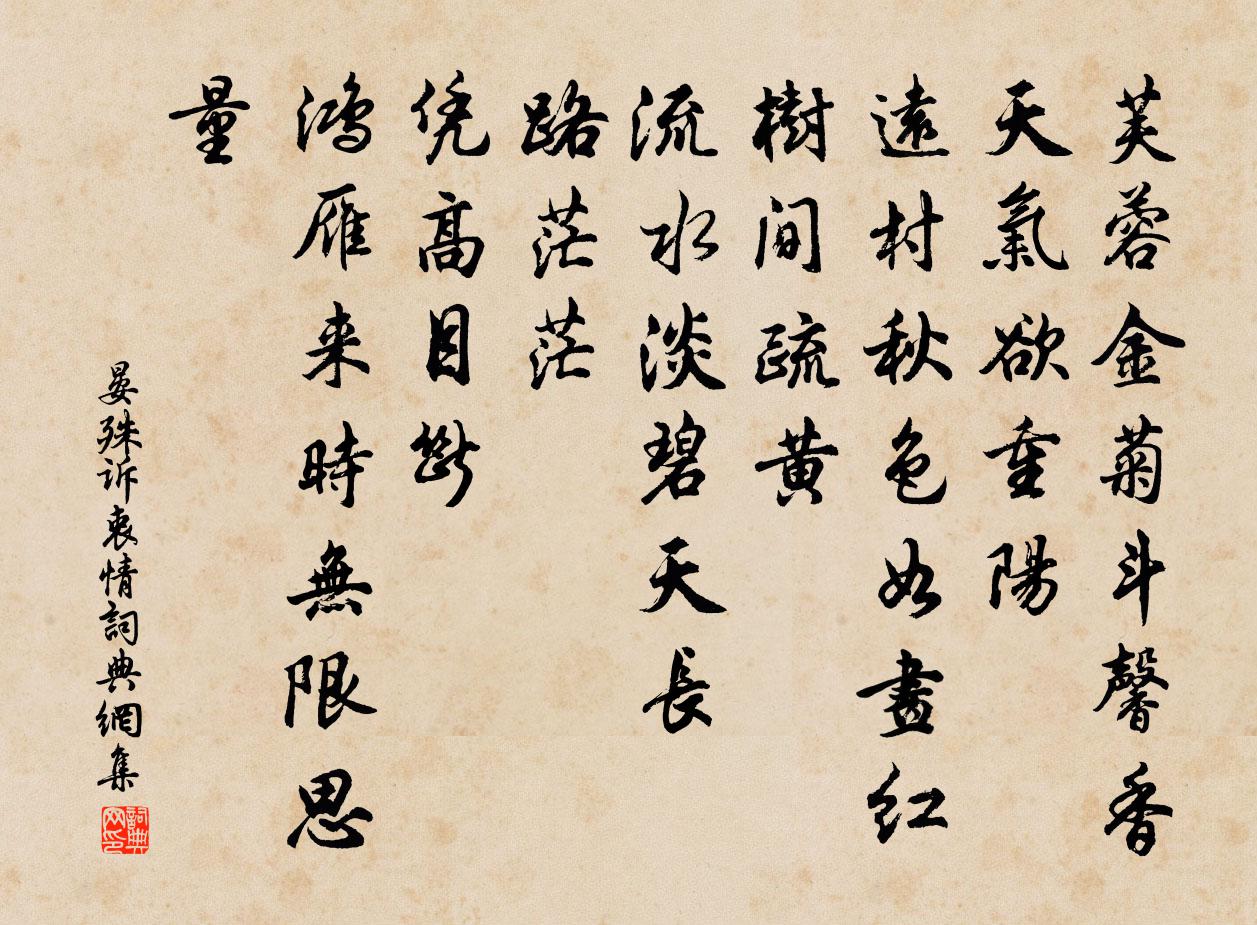 芙蓉金菊斗馨香
天氣欲重陽
遠村秋色如畫紅
樹間疏黄
流水淡碧天長
路茫茫
凭高目斷
鴻雁来時無限思
量
晏殊訴衷情詞典網集
詞典网印